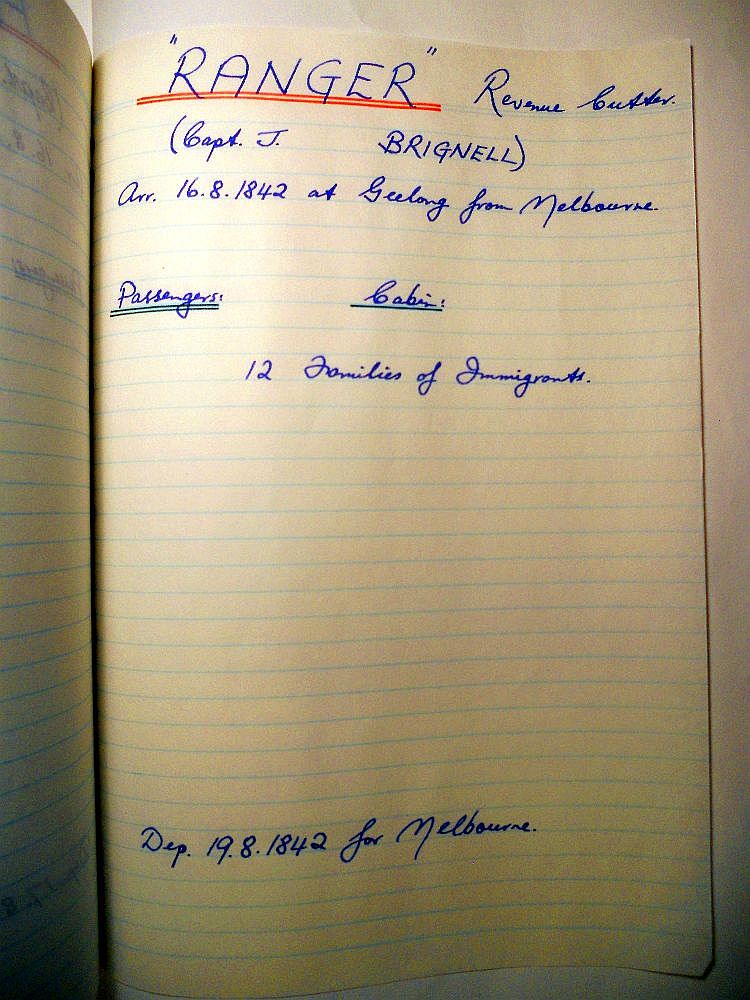 "RANGER" Revenue Cutter.
(Capt. J. BRIGNELL)
Arr. 16.8.1842 at Geelong from Melbourne.
Passengers: Cabin:
12 Families of Immigrants.
Dep. 19.8.1842 for Melbourne.